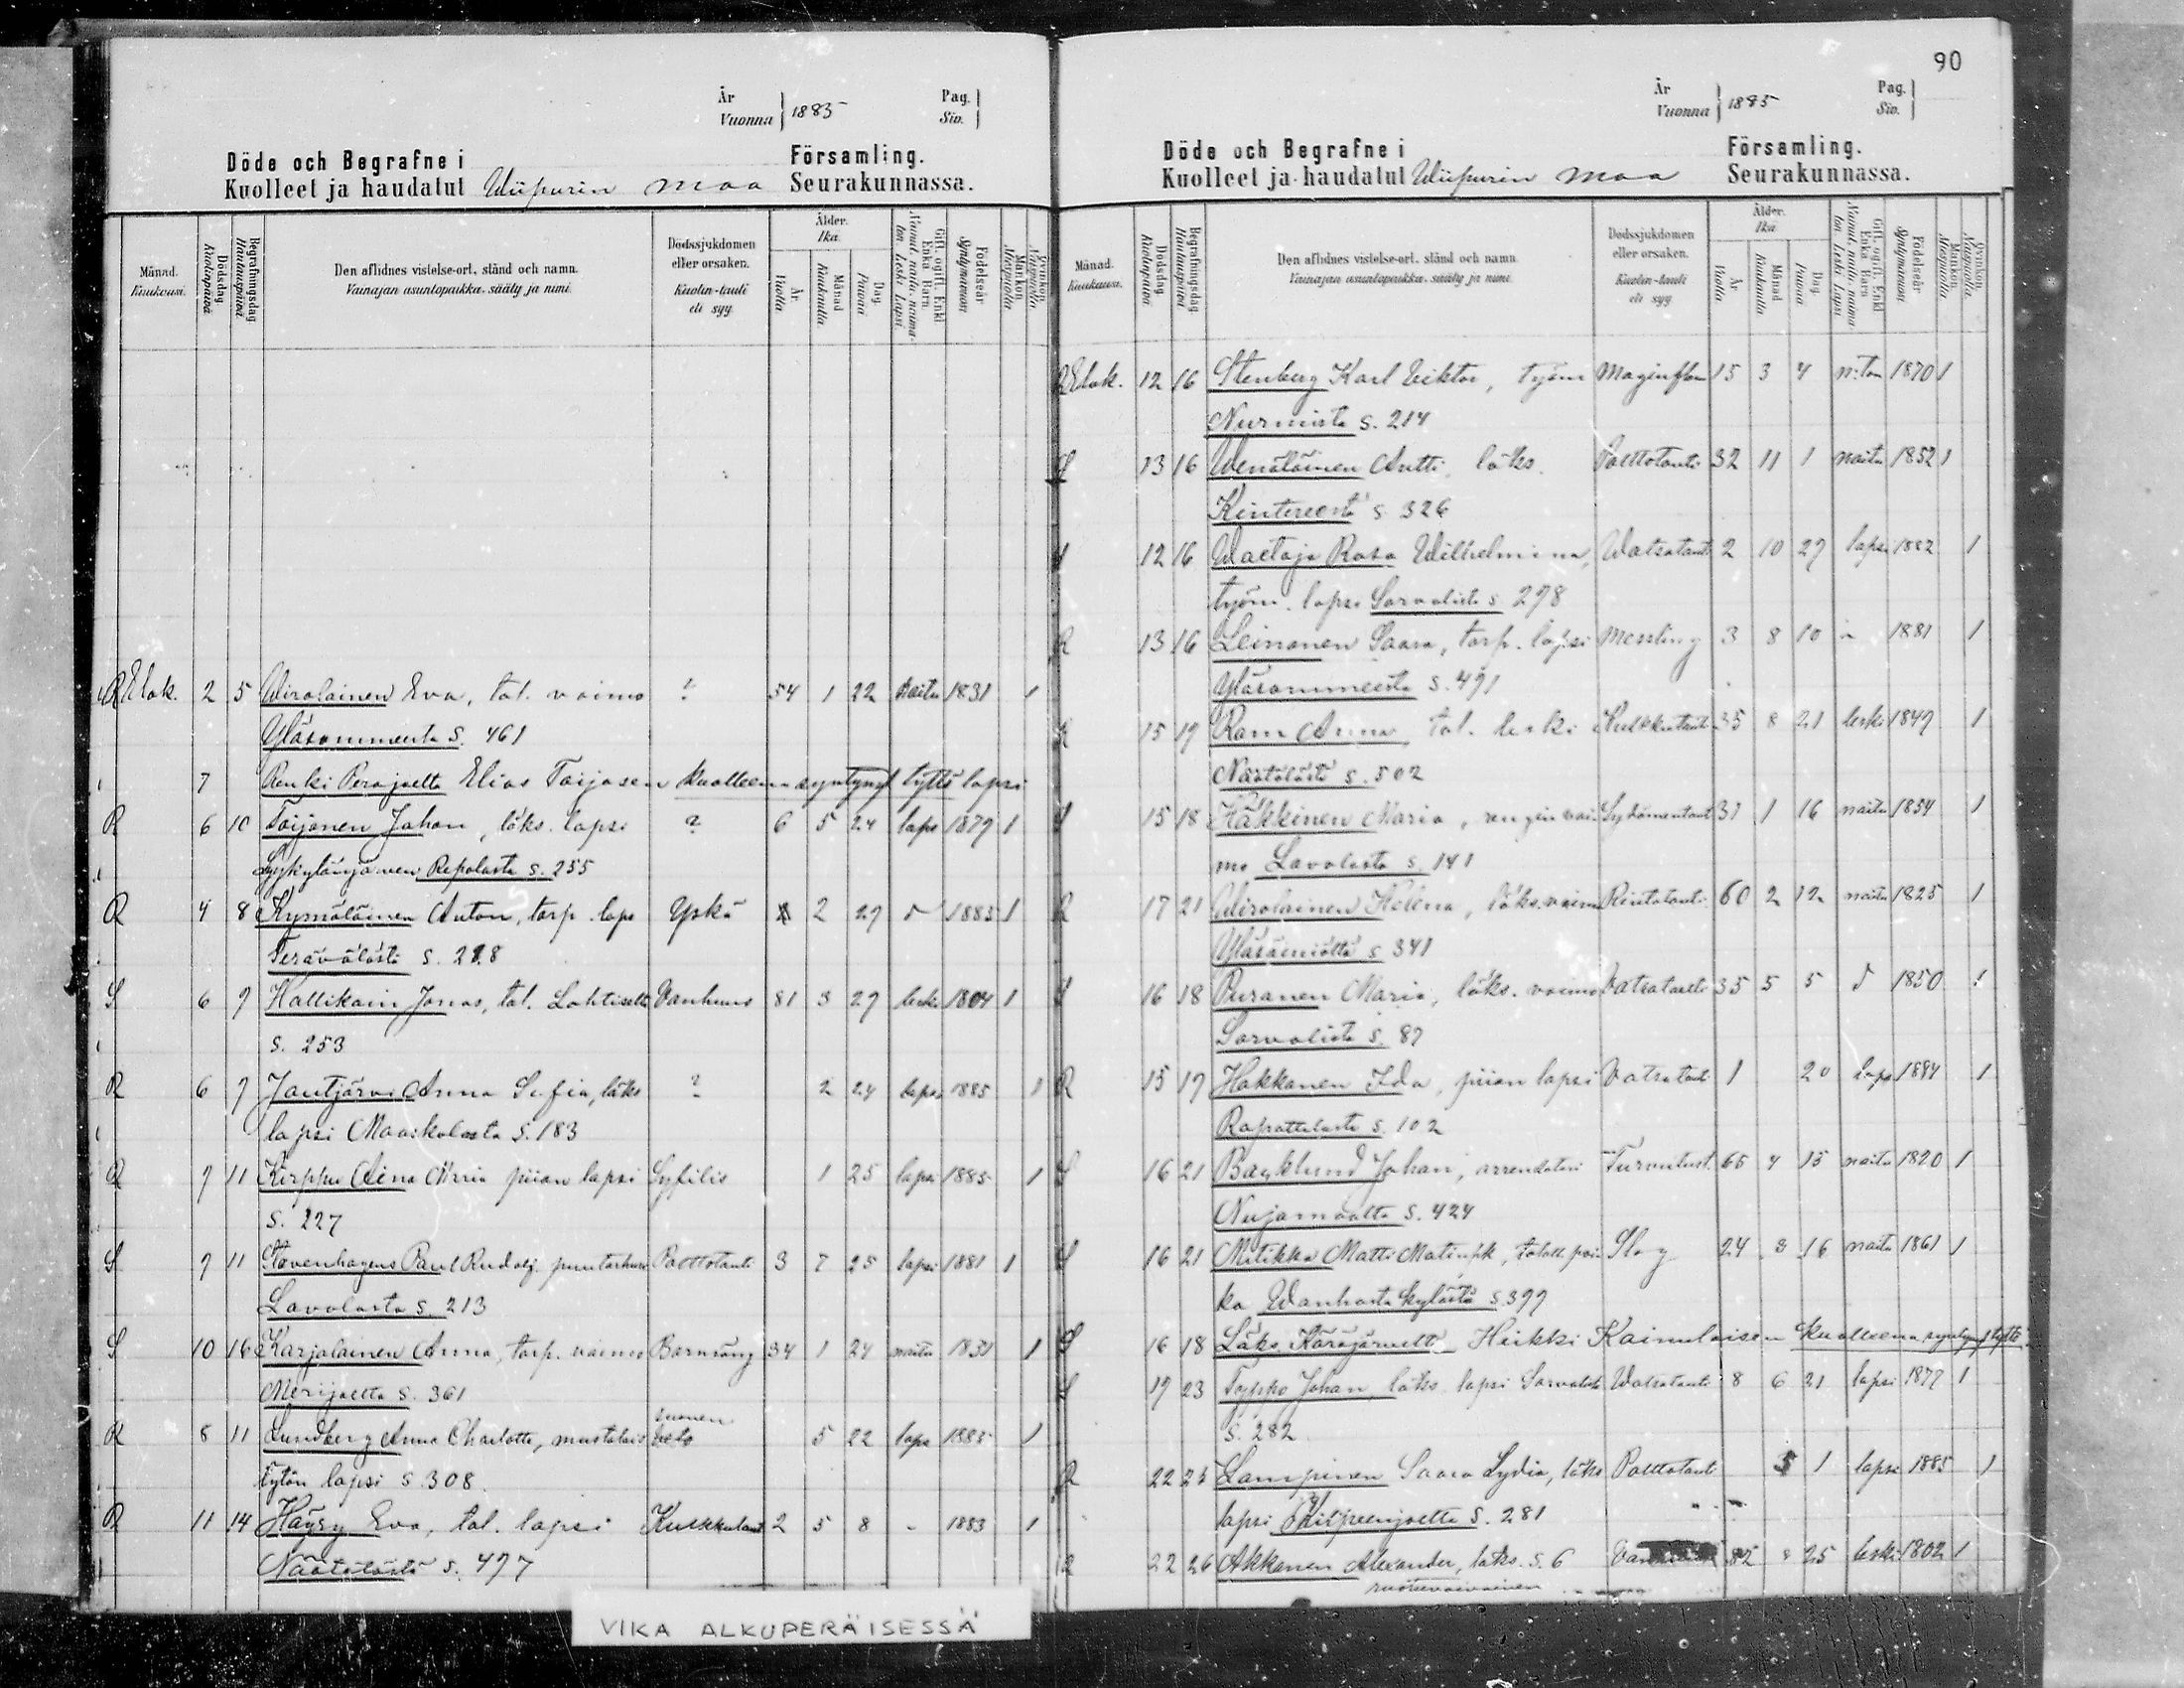 90
År
Vuonna 1885
Pag.
Siv.
Döde och Begrafne i Församling.
Kuolleet ja haudatut Wiipurin maa Seurakunnassa.
Månad. Kuukausi.
Dödsdag Kuolinpäivä
Begrafningsdag Hautauspäivä
Den aflidnes vistelse-ort, stånd och namn.
Vainajan asuntopaikka, sääty ja nimi.
Dödssjukdomen eller orsaken.
Kuolin-tauti eli syy
Ålder. Ikä.
År Vuotta
Månad Kuukautta
Dag Päivää
Gift, ogift, Enkl. Enka Barn
Födelseår Syntymävuosi
Mankön Miespuolia
Qvinkön Vaispuolia
R Elok. 2 5 Wirolainen Eva, tal. vaimo ? 54 1 22 naitu 1831 1
Yläsommeelta s. 461
7 Renki Perojoelta Elias Toijosen kuolleena syntynyt tyttö lapsi
R 6 10 Toijonen Johan, läks. lapsi ? 6 5 24 laps 1879 1
Repolasta s. 255
R 4 8 Kymäläinen Anton, torp. laps Yskä 2 27 1885 1
Terävälästä s. 218
S 6 9 Hallikain Jonas, tal. Lahtiselta Vanhuus 81 3 27 leski 1804 1
s. 253
R 6 9 Jautjärvi Anna Sofia, läks ? 2 24 lapsi 1885 1
lapsi Maaskolasta s. 183
R 9 11 Kirppu Aina Maria piian lapsi Syfilis 1 25 lapsi 1885 1
s. 227
S 9 11 Stavenhagens Paul Rudolf. puutarhur Polttotauti 3 7 25 lapsi 1881 1
Lavolasta s. 213
S 10 16 Karjalainen Anna, torp. vaimo Barnsäng 34 1 24 naitu 1831 1
Merijoelta s. 361
R 8 11 Lundberg Anna Charlotta, mustalais 5 22 laps 1885 1
tytön lapsi s. 308
R 11 14 Häysy Eva, tal. lapsi Kulkkutaut 2 5 8 - 1883 1
Näätälästä s. 497
År
Vuonna 1885
Pag.
Siv.
Döde och Begrafne i Församling.
Kuolleet ja haudatut Wiipurin maa Seurakunnassa.
Månad. Kuukausi.
Dödsdag Kuolinpäivä
Begrafningsdag Hautauspäivä
Den aflidnes vistelse-ort, stånd och namn.
Vainajan asuntopaikka, sääty ja nimi.
Dödssjukdomen eller orsaken.
Kuolin-tauti eli syy
Ålder. Ikä.
År Vuotta
Månad Kuukautta
Dag Päivää
Gift, ogift, Enkl. Enka Barn
Födelseår Syntymävuosi
Mankön Miespuolia
Qvinkön Vaispuolia
R Elok. 12 16 Stenberg Karl Viktor, työm 15 3 4 n:ton 1870 1
Nurmista s. 214
S 13 16 Wenäläinen Antti, läks. Polttotauti 32 11 1 naitu 1852 1
Kintereestä s. 326
S 12 16 Waltaja Rosa Wilhelmina, Watsataut 2 10 27 lapsi 1882 1
työm. lapsi Sorvalista s. 278
R 13 16 Leinonen Saara, torp. lapsi Messling 3 8 10 1881 1
Yläsommeesta s. 491
R 15 19 Ram Anna, tal. leski Kulkkutauti 35 8 21 leski 1849 1
Näätälästä s. 502
S 15 18 Häkkinen Maria, rengin vai- Sydämentaut 31 1 16 naitu 1854 1
mo Lavolasta s. 141
R 17 21 Wirolainen Helena, läks. vaimo Rintatauti 60 2 12 naitu 1825 1
s. 341
S 16 18 Puranen Maria, läks. vaimo Vatsatauti 35 5 5 1850 1
Sorvalista s. 87
R 15 19 Hakkanen Ida, piian lapsi Vatsataut 1 20 laps 1884 1
Rapattilasta s. 102
S 16 21 Backlund Johan, arrendatori Turvutust. 65 4 15 naitu 1820 1
Nujamaalta s. 424
S 16 21 Mitikka Matti Matinpk, talall. poi- Slag 24 3 16 naitu 1861 1
ka Wanhasta kylästä s. 399
S 16 18 Läks. Käräjärveltä Heikki Kainulaisen kuolleena syntynyt tyttö
S 19 23 Toppo Johan, läks. lapsi Sorvalista Watsatauti 8 6 21 lapsi 1877 1
s. 282
R 22 25 Lampinen Saara Lydia, läks Polttotauti 5 1 lapsi 1885 1
lapsi Kilpeenjoelta s. 281
R 22 26 Akkanen Alexander, läks. s. 6 82 25 leski 1802 1
ruotuvaivainen
VIKA ALKUPERÄISESSÄ